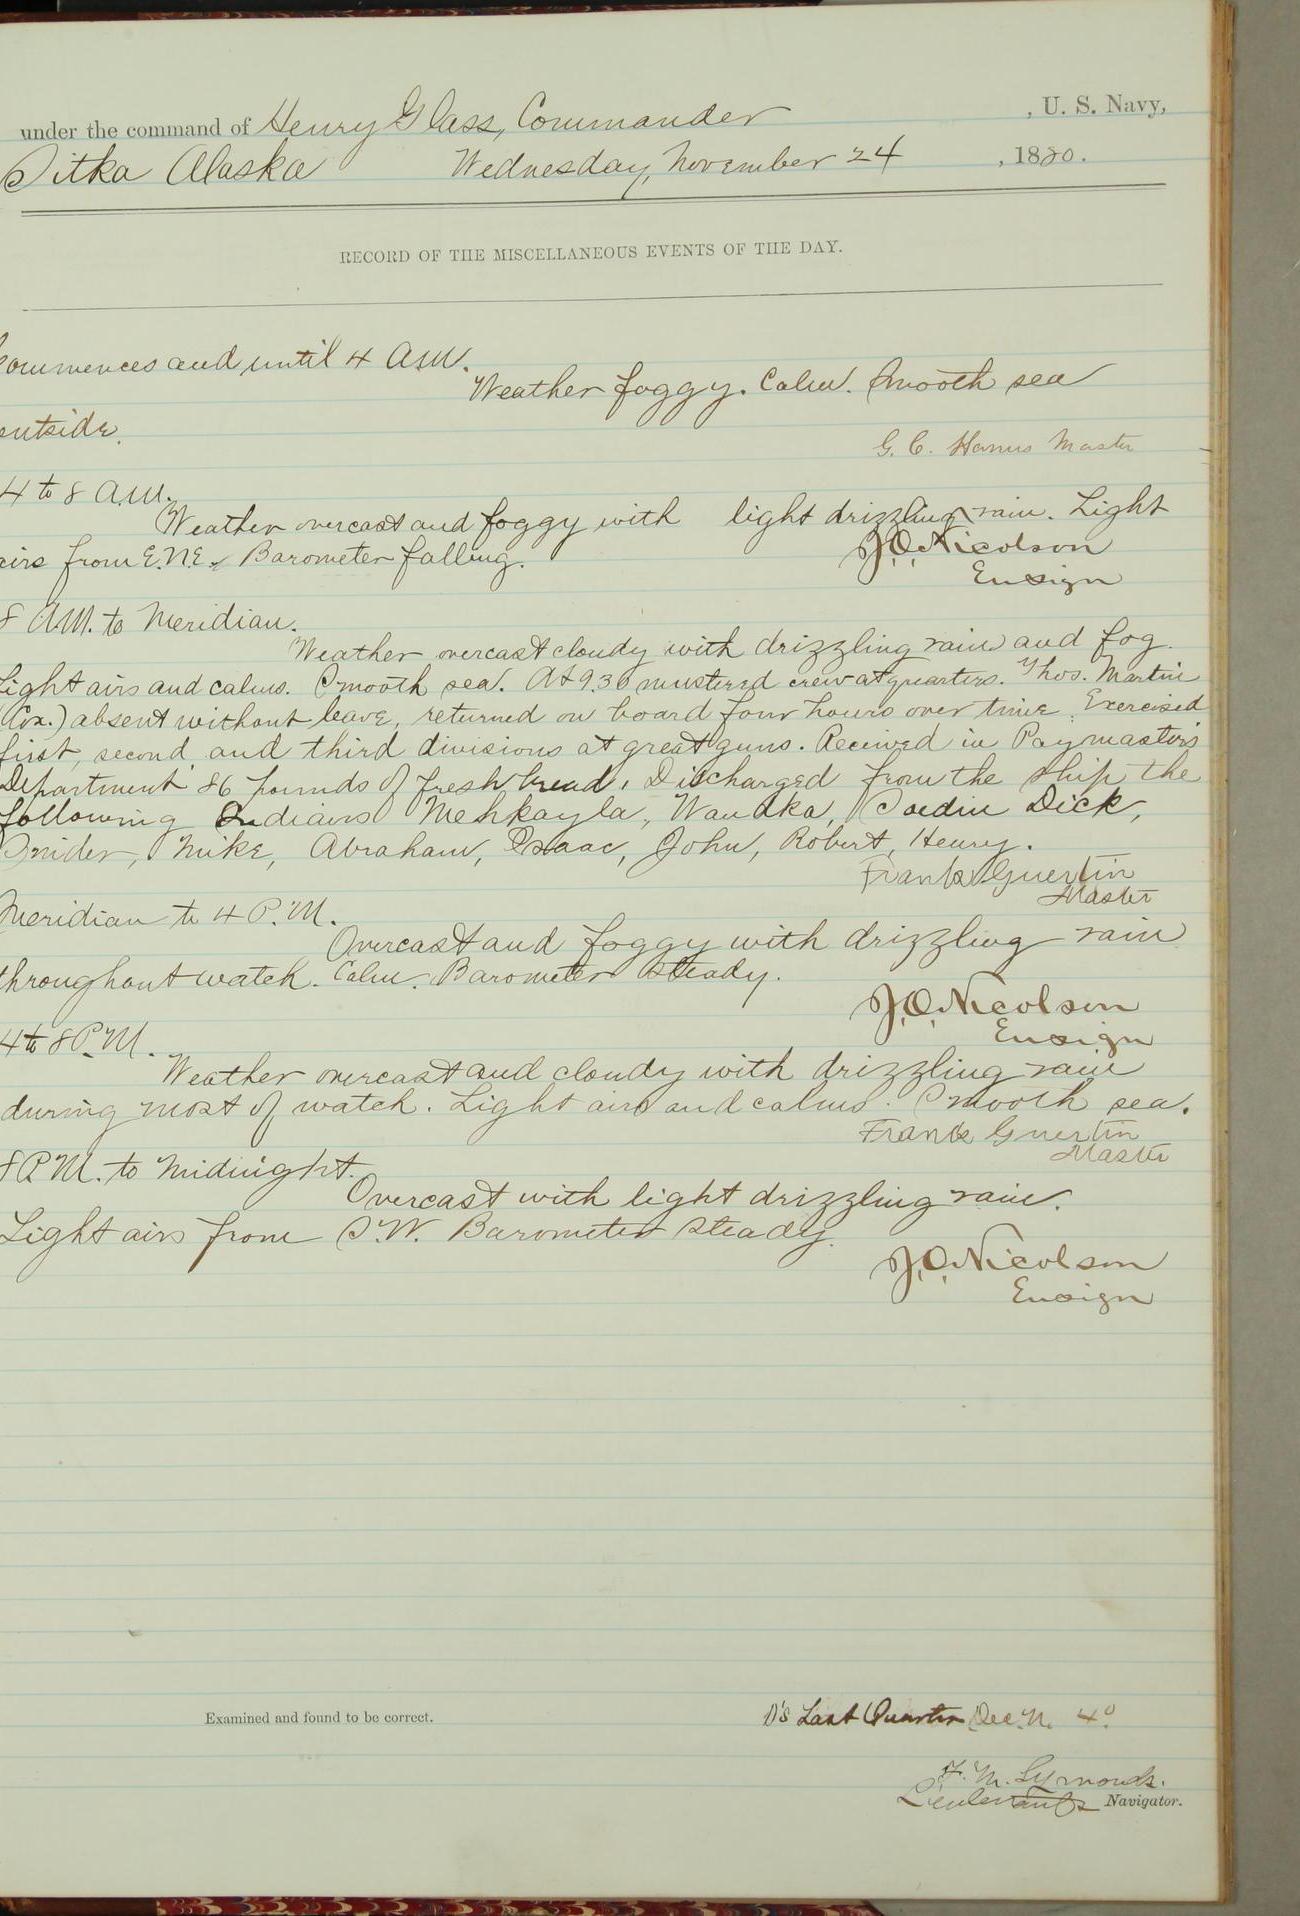 under the command of Henry Glass, Commander , U. S. Navy,
Sitka Alaska Wednesday, November 24 , 1880.
RECORD OF THE MISCELLANEOUS EVENTS OF THE DAY.
Commences and until 4 A.M.
Weather foggy. Calm. Smooth sea
outside.
G. C. Hanus Master
4 to 8 A.M.
Weather overcast and foggy with light drizzling rain. Light
airs from E.N.E. Barometer falling.
J.O. Nicolson
Ensign
8 A.M. to Meridian.
Weather overcast cloudy with drizzling rain and fog.
Light airs and calms. Smooth sea. At 9.30 mustered crew at quarters. Thos. Martin
(Cox.) absent without leave, returned on board four hours over time. Exercised
first, second and third divisions at great guns. Received in Paymaster's
Department 86 pounds of fresh bread. Discharged from the ship the
following Indians Mehkayla, Dick,
Snider, Mike, Abraham, Isaac, John, Robert, Henry.
Frank Guertin
Master
Meridian to 4 P.M.
Overcast and foggy with drizzling rain
throughout watch. Calm. Barometer steady.
J.O. Nicolson
Ensign
4 to 8 P.M.
Weather overcast and cloudy with drizzling rain
during most of watch. Light airs and calms. Smooth sea.
Frank Guertin
Master
8 P.M. to Midnight.
Overcast with light drizzling rain.
Light airs from S.W. Barometer steady.
J.O. Nicolson
Ensign
Examined and found to be correct.
D's Last Quarter Dec. N. 4°
F. M. Symonds.
Lieutenant Navigator.